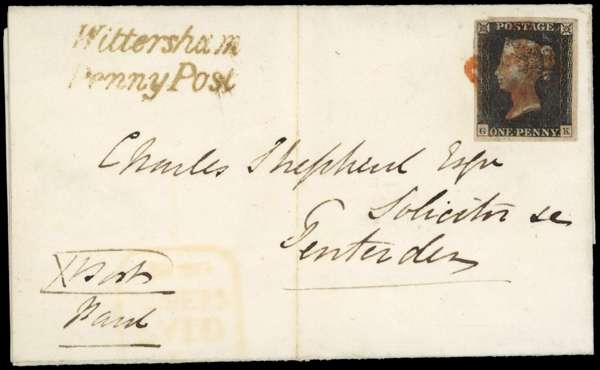 Wittersham
Penny Post
POSTAGE
G ONE PENNY K
Charles Shepherd Esqr
Solicitor &c
Tenterden
X Post
Paid